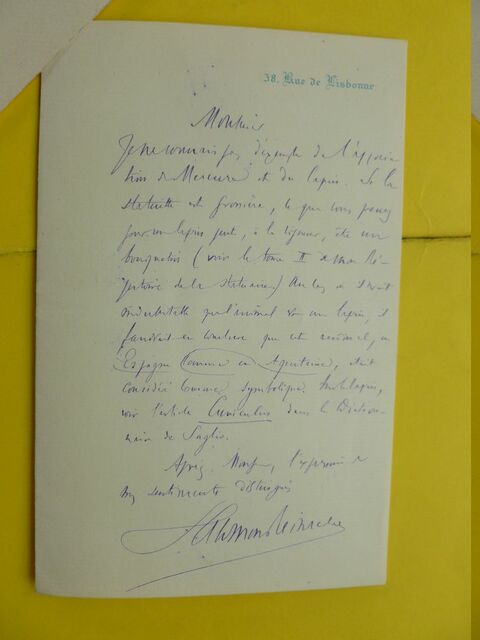 38, Rue de Lisbonne
Monsieur
Je ne connais pas d'exemple de l'associa-
tion de Mercure et du lapin. Si la
statuette est grossière, ce que vous prenez
pour un lapin peut, à la rigueur, être un
bouquetin (voir le tome II de mon Ré-
pertoire de la statuaire). Au cas où il serait
indubitable que l'animal est un lapin, il
faudrait en conclure que cet animal, en
Espagne comme en Aquitaine, était
considéré comme symbolique. Sur le lapin,
voir l'article Cuniculus dans le Diction-
naire de Saglio.
Agréez, Monsieur, l'expression de
mes sentiments distingués
Salomon Reinach